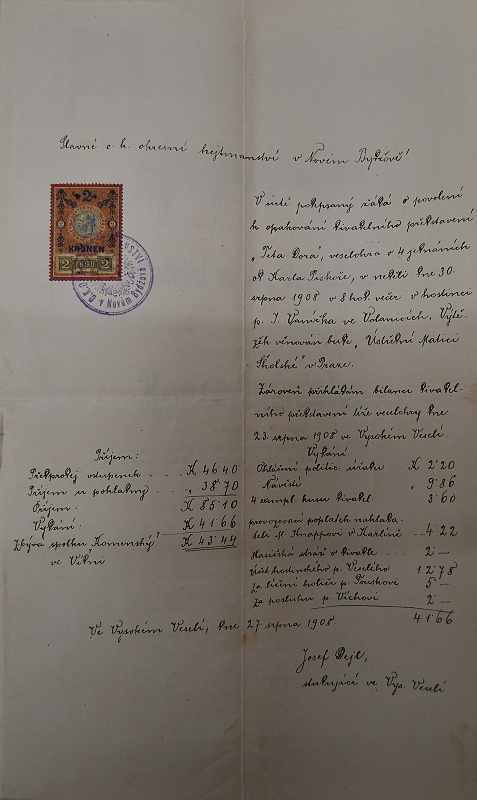 Slavné c. k. okresní hejtmanství v Novém Bydžově!
2
KRONEN
2 898 2
v Novém Bydžově
V úctě podepsaný žádá o povolení
k opakování divadelního představení
„Teta Dora", veselohra o 4 jednáních
od Karla Piskoře, v neděli dne 30.
srpna 1908 v 8 hod. večer v hostinci
p. J. Vaníčka ve Volanicích. Výtě-
žek věnován bude „Ústřední Matici
Školské" v Praze.
Zároveň přikládám bilanci divadel-
ního představení téže veselohry dne
23. srpna 1908 ve Vysokém Veselí.
Příjem:
Předprodej vstupenek . . . K 46·40
Příjem u pokladny . . „ 38·70
Příjem: K 85·10
Vydání: K 41·66
Zbývá spolku „Komenský" K 43·44
ve Vídni
Vydání
Ohlášení politic. úřadu K 2·20
Návěští „ 9·86
4 exempl. kusu divadel. 3·60
provozovací poplatek naklada-
teli M. Knappovi v Karlíně . . 4·22
Hasičská stráž v divadle . . . 2·—
Účet hodinského p. Veselého 12·78
Za líčení holiči p. 5·—
Za posluhu p. Víchovi 2·—
41·66
Ve Vysokém Veselí, dne 27. srpna 1908.
Josef Dejl,
studující ve Vys. Veselí